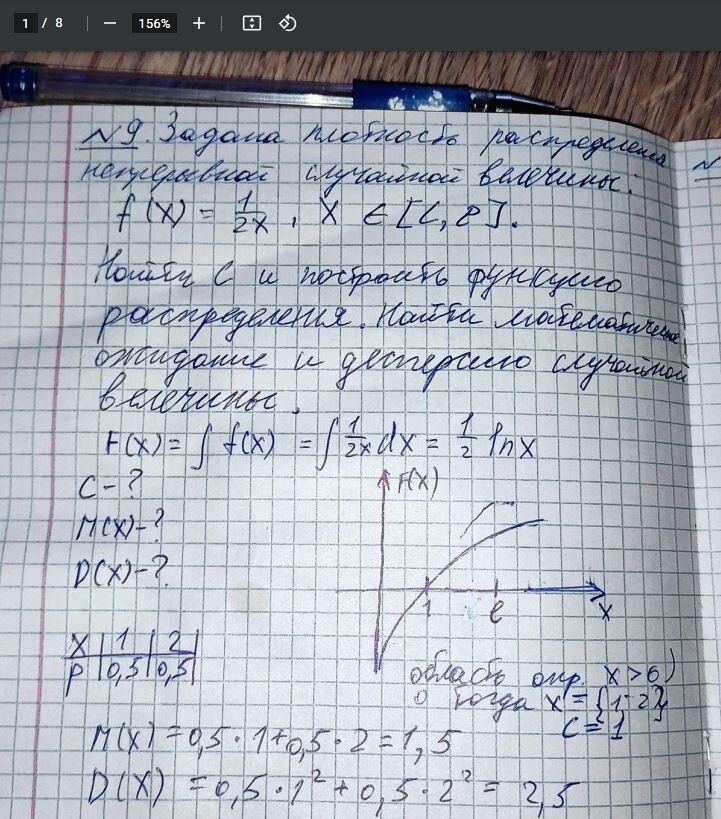 1 / 8 156%
№9. Задана плотность распределения
непрерывной случайной велечины:
f(x) = 1/2x , X ∈ [C, e].
Найти C и построить функцию
распределения. Найти математическое
ожидание и десперсию случайной
велечины.
F(x) = ∫ f(x) = ∫ 1/2x dx = 1/2 ln x
C - ?
M(x) - ?
D(x) - ?
F(x)
1 e x
X | 1 | 2
P | 0,5 | 0,5
область опр. x > 0)
тогда x = {1-2}
C = 1
M(x) = 0,5 · 1 + 0,5 · 2 = 1,5
D(X) = 0,5 · 1² + 0,5 · 2² = 2,5